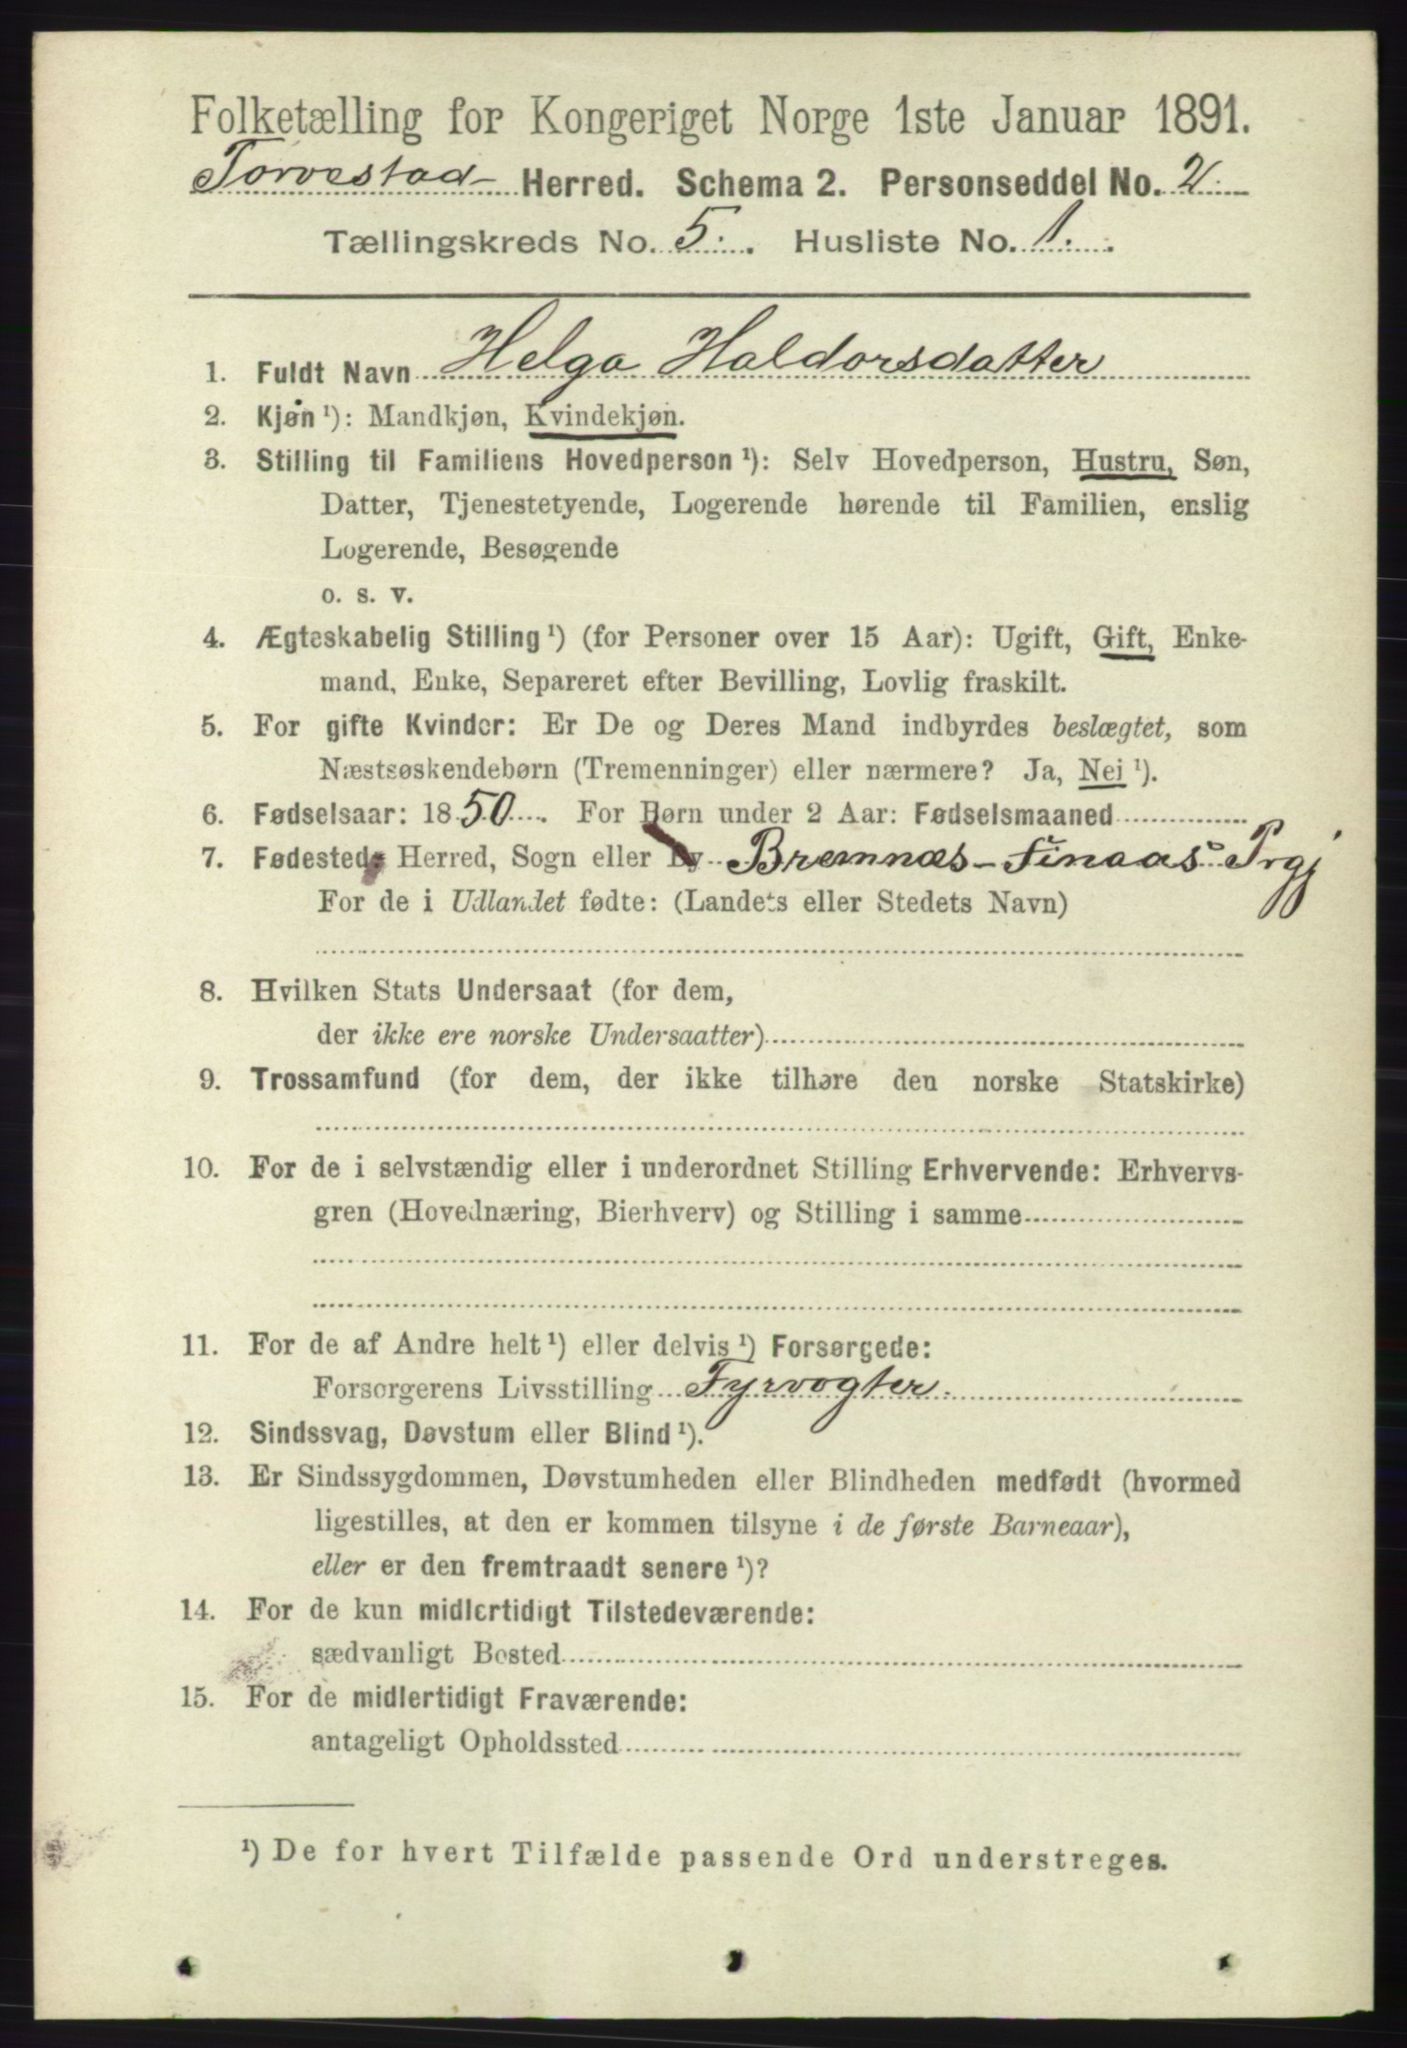 Folketælling for Kongeriget Norge 1ste Januar 1891.
Torvestad Herred. Schema 2. Personseddel No. 2.
Tællingskreds No. 5. Husliste No. 1.
1. Fuldt Navn Helga Haldorsdatter
2. Kjøn ¹): Mandkjøn, Kvindekjøn.
3. Stilling til Familiens Hovedperson ¹): Selv Hovedperson, Hustru, Søn,
Datter, Tjenestetyende, Logerende hørende til Familien, enslig
Logerende, Besøgende
o. s. v.
4. Ægteskabelig Stilling ¹) (for Personer over 15 Aar): Ugift, Gift, Enke-
mand, Enke, Separeret efter Bevilling, Lovlig fraskilt.
5. For gifte Kvinder: Er De og Deres Mand indbyrdes beslægtet, som
Næstsøskendebørn (Tremenninger) eller nærmere? Ja, Nei ¹).
6. Fødselsaar: 1850. For Børn under 2 Aar: Fødselsmaaned
7. Fødested: Herred, Sogn eller By Bremnæs - Finaas Prgj
For de i Udlandet fødte: (Landets eller Stedets Navn)
8. Hvilken Stats Undersaat (for dem,
der ikke ere norske Undersaatter)
9. Trossamfund (for dem, der ikke tilhøre den norske Statskirke)
10. For de i selvstændig eller i underordnet Stilling Erhvervende: Erhvervs-
gren (Hovednæring, Bierhverv) og Stilling i samme
11. For de af Andre helt ¹) eller delvis ¹) Forsørgede:
Forsørgerens Livsstilling Fyrvogter.
12. Sindssvag, Døvstum eller Blind ¹).
13. Er Sindssygdommen, Døvstumheden eller Blindheden medfødt (hvormed
ligestilles, at den er kommen tilsyne i de første Barneaar),
eller er den fremtraadt senere ¹)?
14. For de kun midlertidigt Tilstedeværende:
sædvanligt Bosted
15. For de midlertidigt Fraværende:
antageligt Opholdssted
¹) De for hvert Tilfælde passende Ord understreges.